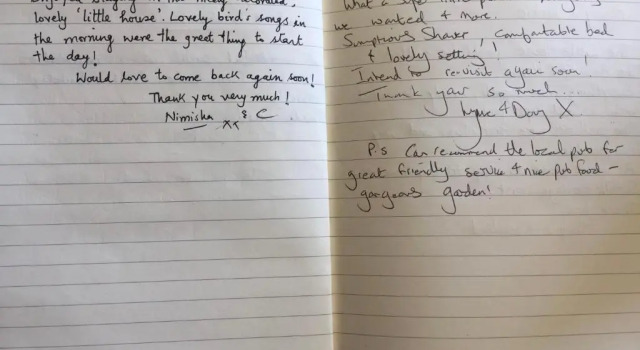 lovely 'little house'. Lovely bird's songs in
the morning were the greet thing to start
the day!
Would love to come back again soon!
Thank you very much!
Nimisha & C
xx
What a
we wanted & more.
Sumptuous Shower, Comfortable bed
& lovely setting!
Intend to re-visit again soon!
Thank you so much...
& Dary X
P.s Can recommend the local pub for
great friendly service & nice pub food -
gorgeous garden!